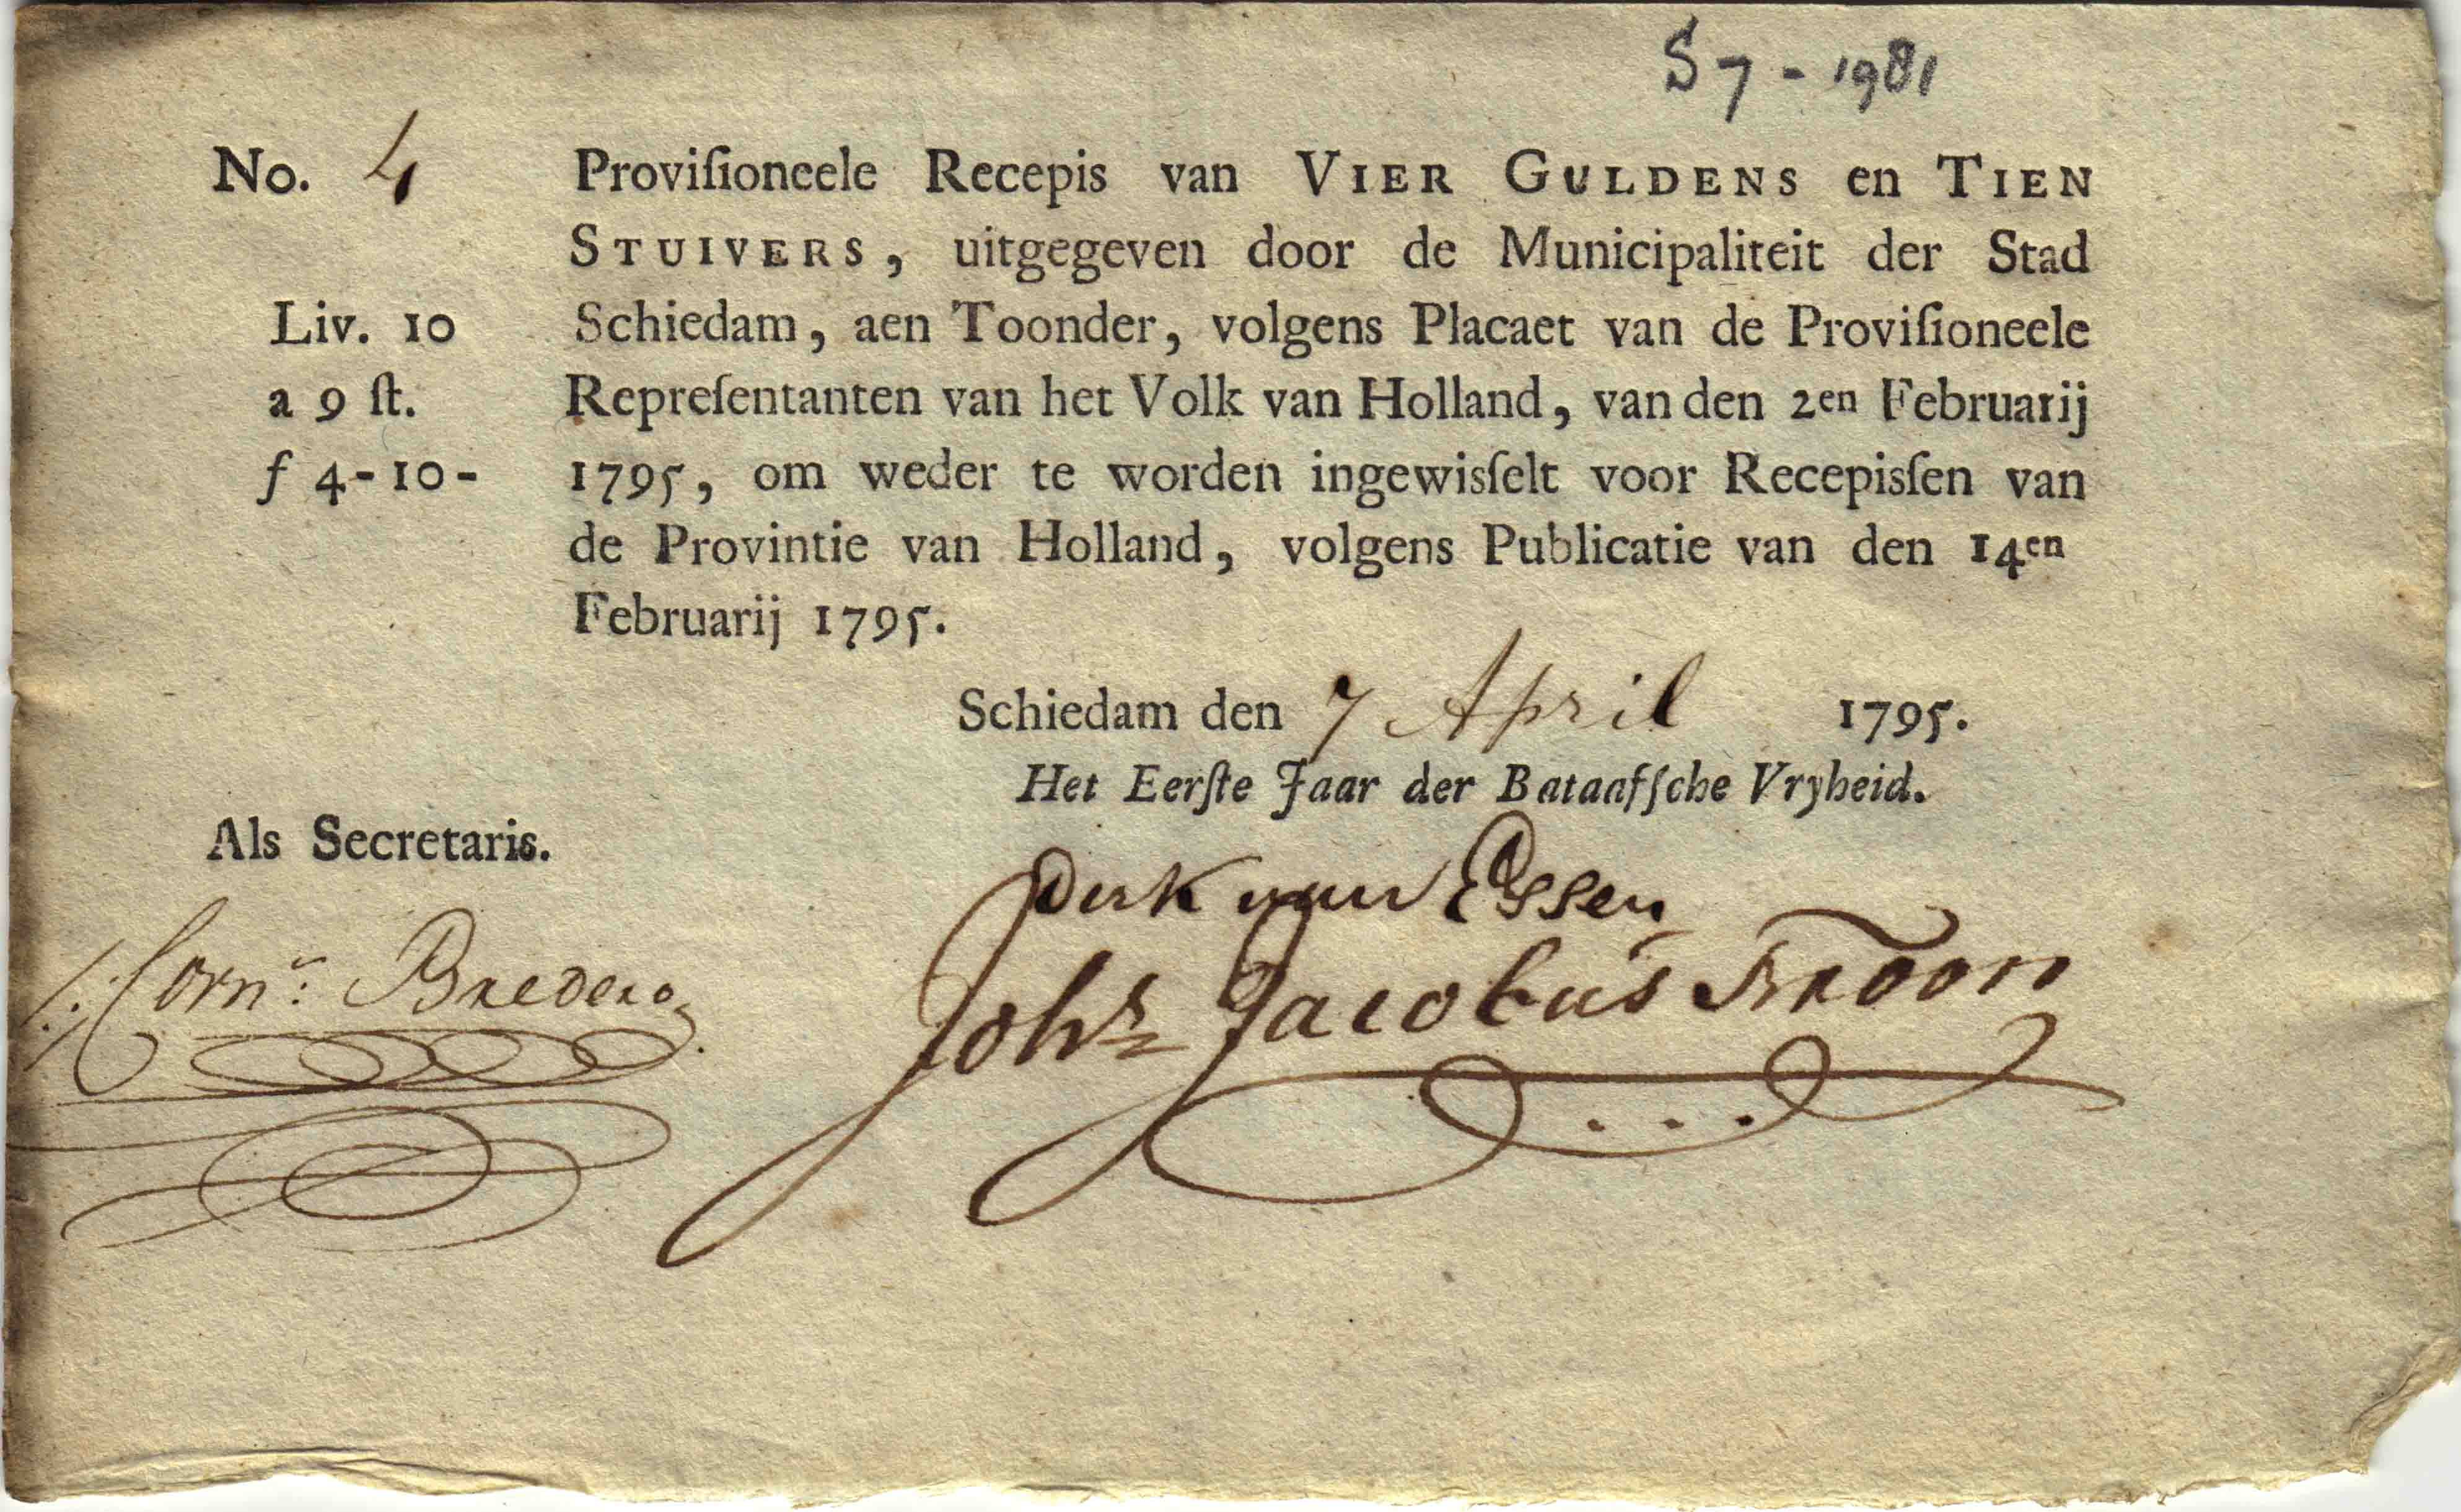 S 7 - 1981
No. 4
Proviſioneele Recepis van VIER GULDENS en TIEN
STUIVERS, uitgegeven door de Municipaliteit der Stad
Liv. 10
Schiedam, aen Toonder, volgens Placaet van de Proviſioneele
a 9 ſt.
Repreſentanten van het Volk van Holland, van den 2en Februarij
f 4-10-
1795, om weder te worden ingewisſelt voor Recepisſen van
de Provintie van Holland, volgens Publicatie van den 14en
Februarij 1795.
Schiedam den 7 April 1795.
Het Eerſte Jaar der Bataafſche Vryheid.
Als Secretaris.
Dirk van Essen
Corn: Bredero
Joh Jacobus